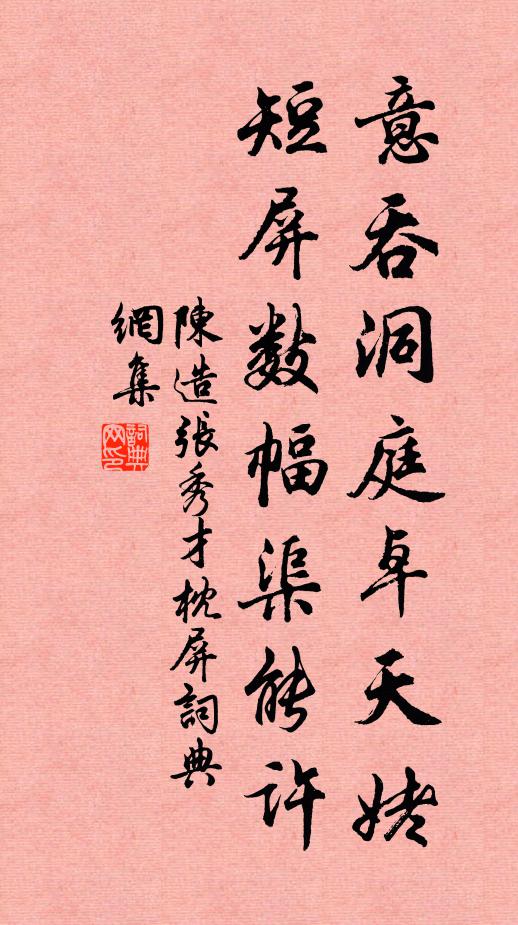 意吞洞庭卓天姥
短屏数幅渠能許
陳造張秀才枕屏詞典
網集
詞典网印